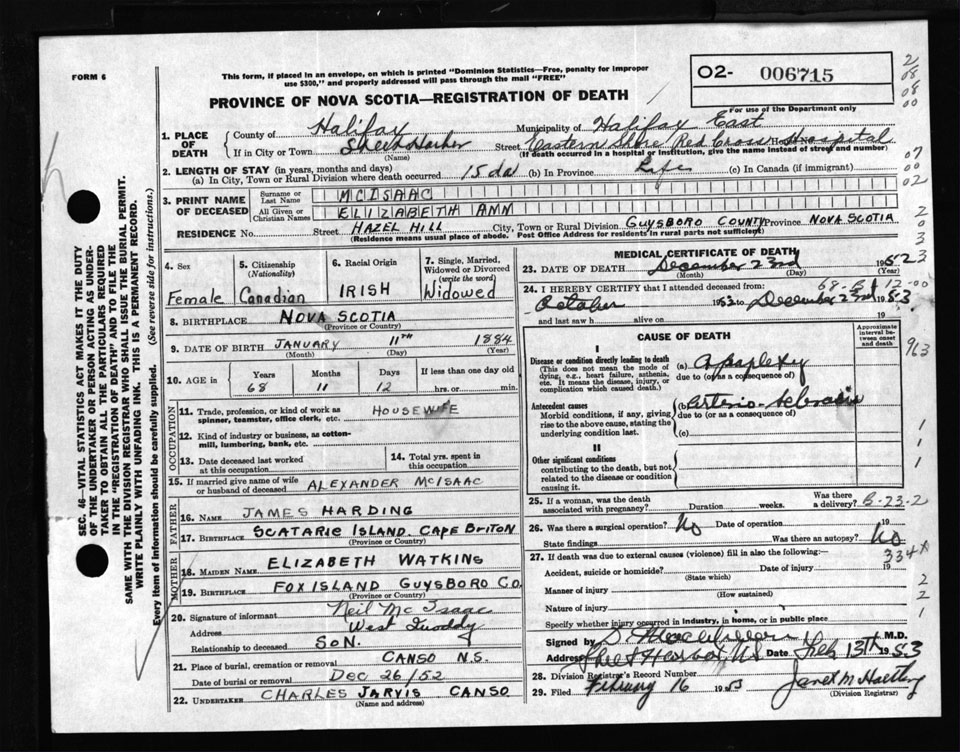 FORM 6
This form, if placed in an envelope, on which is printed "Dominion Statistics—Free, penalty for improper
use $300," and properly addressed will pass through the mail "FREE"
O2- 006715
For use of the Department only
PROVINCE OF NOVA SCOTIA—REGISTRATION OF DEATH
1. PLACE OF DEATH
County of Halifax Municipality of Halifax East
If in City or Town Sheet Harbor Street Eastern Shore Red Cross Hospital
(Name) (If death occurred in a hospital or institution, give the name instead of street and number)
2. LENGTH OF STAY (in years, months and days)
(a) In City, Town or Rural Division where death occurred 15 da (b) In Province Life (c) In Canada (if immigrant)
3. PRINT NAME OF DECEASED
Surname or Last Name MCISAAC
All Given or Christian Names ELIZABETH ANN
RESIDENCE No. Street HAZEL HILL City, Town or Rural Division GUYSBORO COUNTY Province NOVA SCOTIA
(Residence means usual place of abode. Post Office Address for residents in rural parts not sufficient)
4. Sex Female
5. Citizenship (Nationality) Canadian
6. Racial Origin IRISH
7. Single, Married, Widowed or Divorced (write the word) Widowed
8. BIRTHPLACE NOVA SCOTIA
(Province or Country)
9. DATE OF BIRTH JANUARY 11TH 1884
(Month) (Day) (Year)
10. AGE in Years 68 Months 11 Days 12 If less than one day old hrs. or min.
OCCUPATION
11. Trade, profession, or kind of work as spinner, teamster, office clerk, etc. HOUSEWIFE
12. Kind of industry or business, as cotton-mill, lumbering, bank, etc.
13. Date deceased last worked at this occupation
14. Total yrs. spent in this occupation
15. If married give name of wife or husband of deceased ALEXANDER MCISAAC
FATHER
16. NAME JAMES HARDING
17. BIRTHPLACE SCATARIE ISLAND. CAPE BRITON
(Province or Country)
MOTHER
18. MAIDEN NAME ELIZABETH WATKINS
19. BIRTHPLACE FOX ISLAND GUYSBORO CO.
(Province or Country)
20. Signature of informant Neil Mc Isaac
Address West Quoddy
Relationship to deceased SON.
21. Place of burial, cremation or removal CANSO N.S.
Date of burial or removal DEC 26/52
22. UNDERTAKER CHARLES JARVIS CANSO
(Name and address)
MEDICAL CERTIFICATE OF DEATH
23. DATE OF DEATH December 23rd
(Month) (Day) (Year)
24. I HEREBY CERTIFY that I attended deceased from:
October 1953 to December 23rd 1953
and last saw h alive on 19
CAUSE OF DEATH
Approximate interval between onset and death
I
Disease or condition directly leading to death
(This does not mean the mode of dying, e.g., heart failure, asthenia, etc. It means the disease, injury, or complication which caused death.)
(a) Apoplexy
due to (or as a consequence of)
Antecedent causes
Morbid conditions, if any, giving rise to the above cause, stating the underlying condition last.
(b) Arterio-sclerosis
due to (or as a consequence of)
(c)
II
Other significant conditions
contributing to the death, but not related to the disease or condition causing it.
25. If a woman, was the death associated with pregnancy? Duration weeks. Was there a delivery?
26. Was there a surgical operation? No Date of operation 19
State findings Was there an autopsy? No
27. If death was due to external causes (violence) fill in also the following:
Accident, suicide or homicide? Date of injury 19
(State which)
Manner of injury
(How sustained)
Nature of injury
Specify whether injury occurred in industry, in home, or in public place
Signed by M.D.
Address Sheet Harbor, NS Date Feb 13th 1953
28. Division Registrar's Record Number
29. Filed February 16 1953 Janet M
(Division Registrar)
SEC. 46—VITAL STATISTICS ACT MAKES IT THE DUTY
OF THE UNDERTAKER OR PERSON ACTING AS UNDER-
TAKER TO OBTAIN ALL THE PARTICULARS REQUIRED
IN THE "REGISTRATION OF DEATH" AND TO FILE THE
SAME WITH THE DIVISION REGISTRAR WHO SHALL ISSUE THE BURIAL PERMIT.
WRITE PLAINLY WITH UNFADING INK. THIS IS A PERMANENT RECORD.
Every item of information should be carefully supplied. (See reverse side for instructions.)